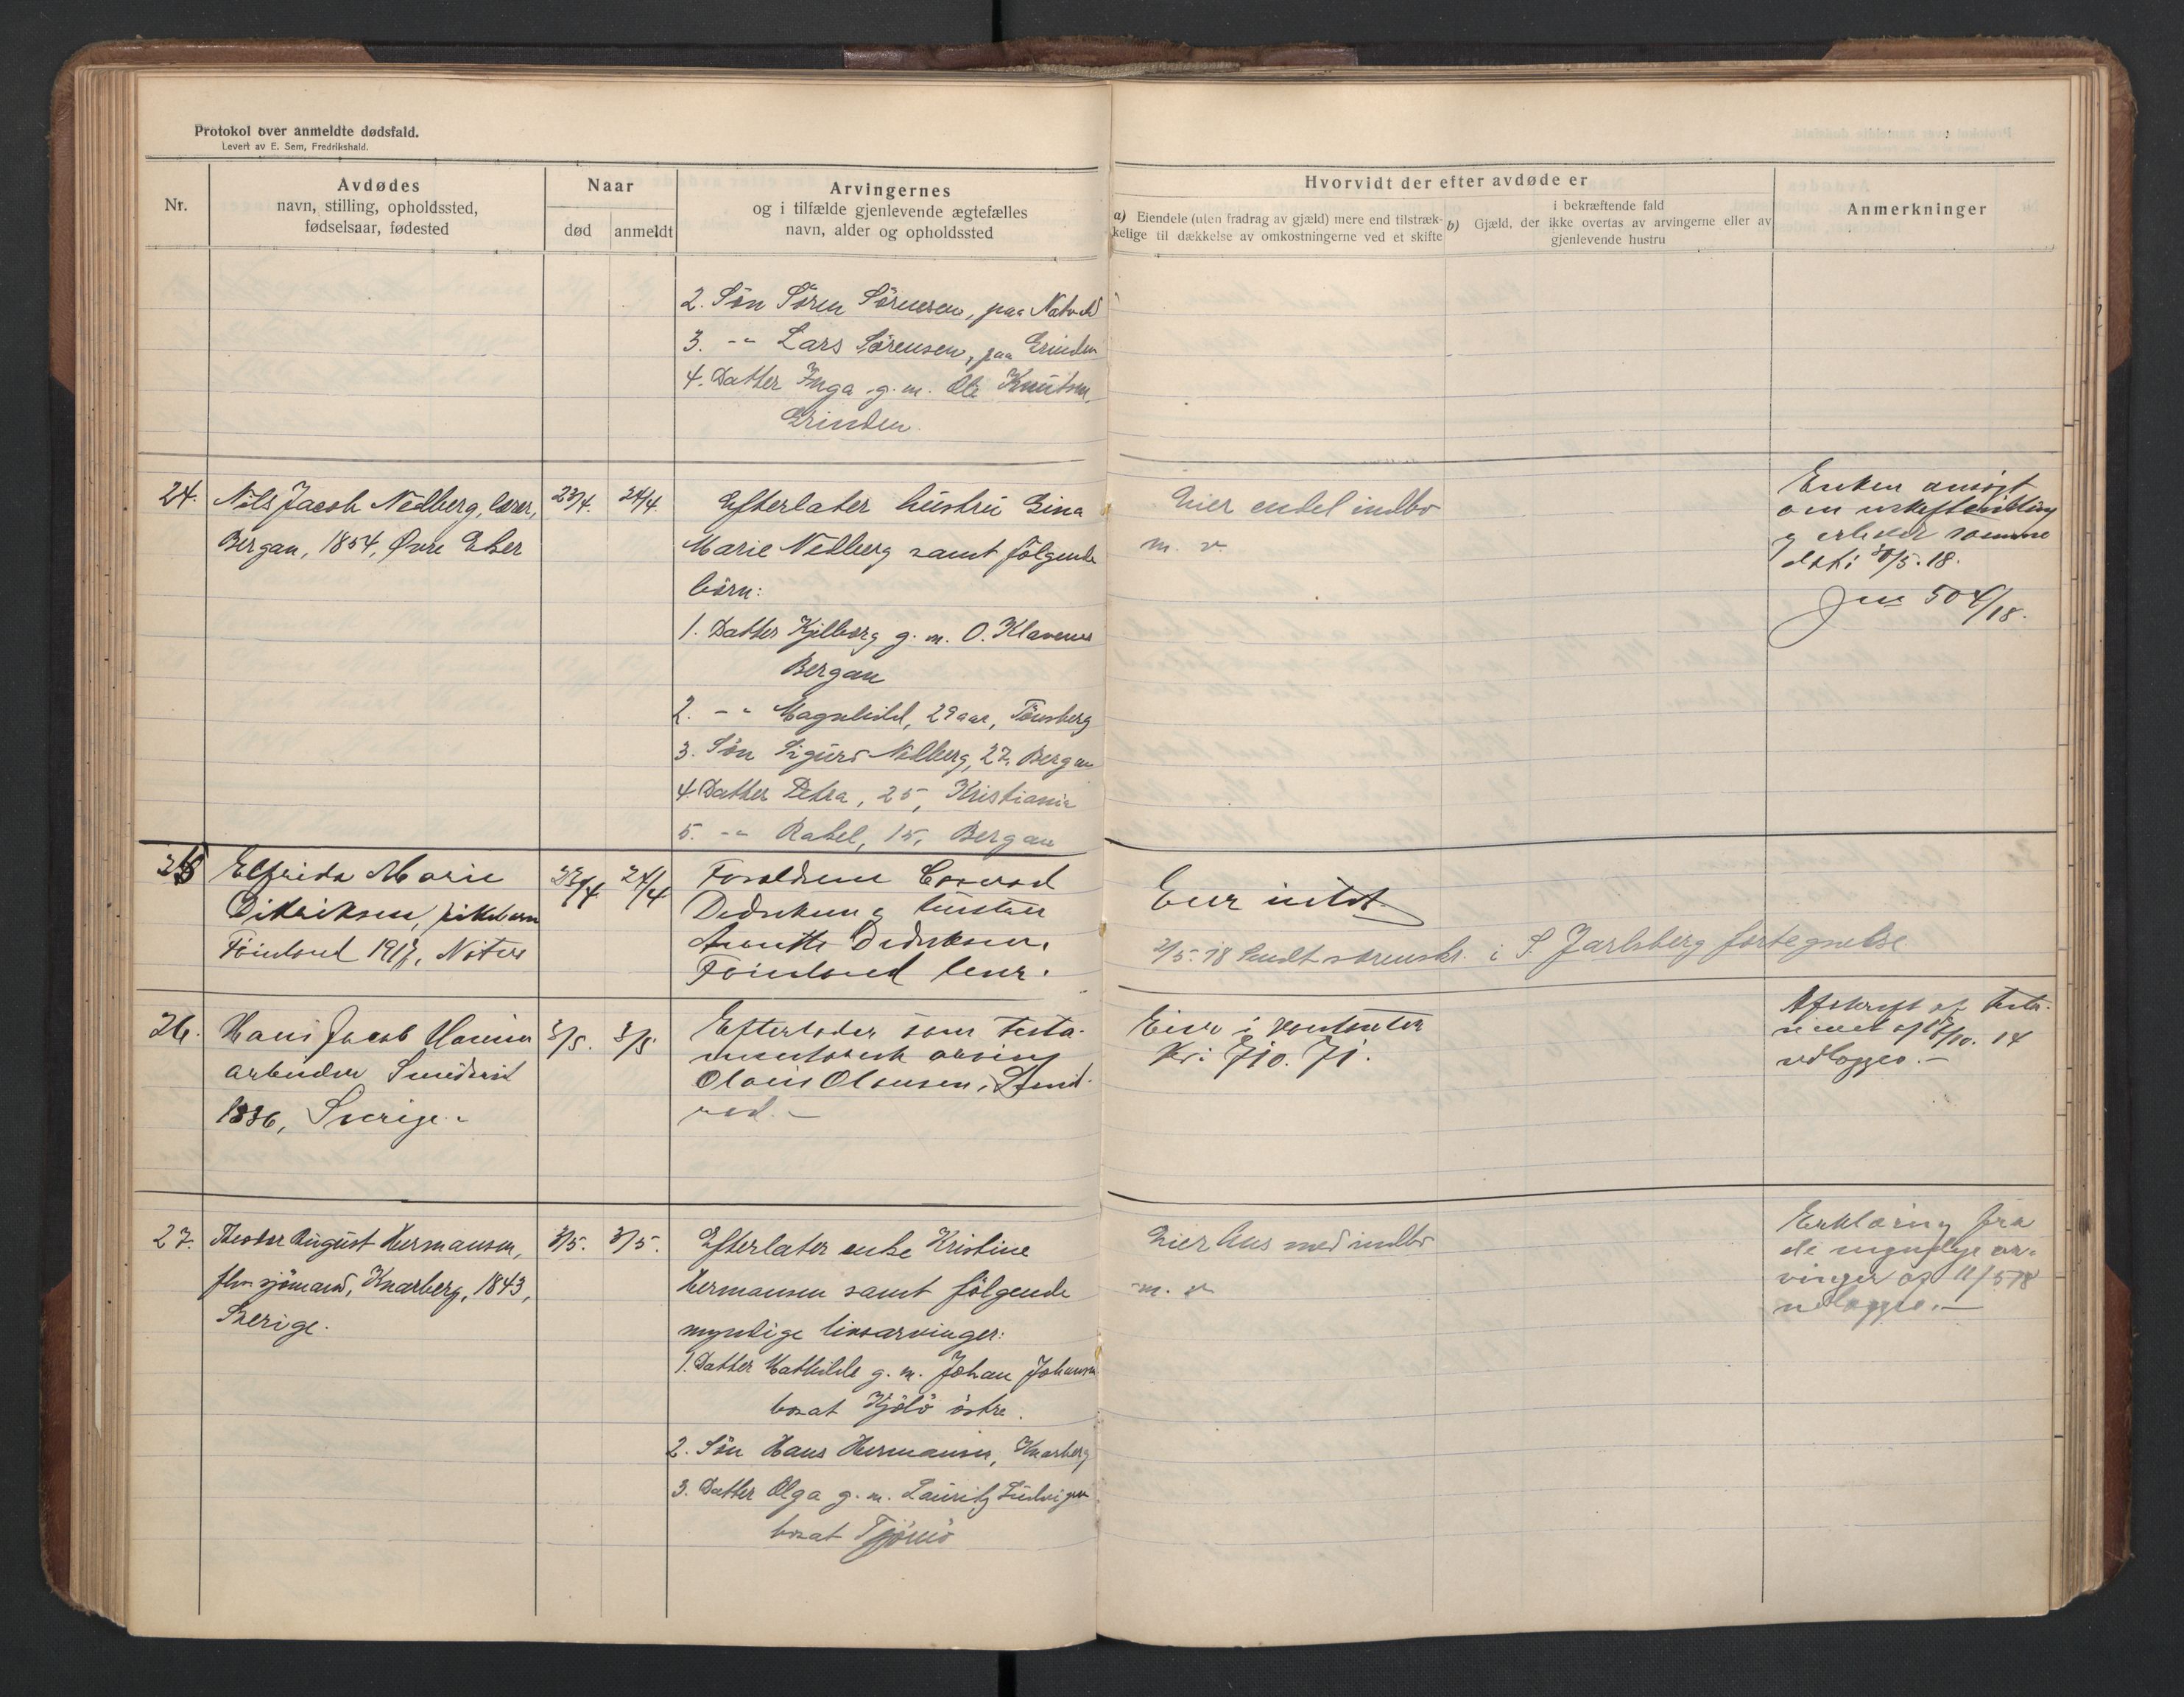 Protokol over anmeldte dødsfald.
Levert av E. Sem, Fredrikshald.
Nr.
Avdødes
navn, stilling, opholdssted,
fødselsaar, fødested
Naar
død
anmeldt
Arvingernes
og i tilfælde gjenlevende ægtefælles
navn, alder og opholdssted
Hvorvidt der efter avdøde er
a) Eiendele (uten fradrag av gjæld) mere end tilstræk-
kelige til dækkelse av omkostningerne ved et skifte
i bekræftende fald
b) Gjæld, der ikke overtas av arvingerne eller av
gjenlevende hustru
Anmerkninger
2. Søn Sören Sörensen, paa
3. -"- Lars Sörensen, paa Grinden
4. Datter Inga g. m. Ole Knutsen,
Grinden.
24.
Nils Jacob Nedberg, lærer,
Bergan, 1854, Øvre Eker
23/4.
24/4.
Efterlater hustru Gina
Marie Nedberg samt følgende
børn:
1. Datter g. m. O. Klavenes
Bergan
2. -"- Magnhild, 29 aar, Tönsberg
3. Søn Sigurd Nedberg, 27, Bergan
4. Datter Petra, 25, Kristiania
5. -"- Rakel, 15, Bergan
Eier endel indbo
m. v.
Enken ansøgt
om uskifte
samme
30/5.18.
Jnr 504/18.
25
Elfrida Marie
Didriksen, pikebarn
Föinland 1917, Nøterø
23/4
24/4
Forældrene Conrad
Didriksen og hustru
Annette Didriksen,
Föinland
Eier intet
2/5-18 Sendt sorenskr. i S. Jarlsberg fortegnelse
26.
Hans Jacob
arbeider Smidsrød
1836, Sverige.
3/5.
3/5
Efterlader som testa-
mentarisk arving
Olaus Olausen, Smids-
rød.-
Eier i kontanter
Kr: 710.71.
Afskrift af testa-
ment af /10. 14
vedlægges.-
27.
Teodor August Hermansen,
fhv. sjömand, Knarberg, 1843,
Sverige.
3/5.
3/5.
Efterlater enke Kristine
Hermansen samt følgende
myndige livsarvinger:
1. Datter Mathilde g. m. Johan Johansen
bosat Kjölö östre.
2. Søn Hans Hermansen, Knarberg
3. Datter Olga g. m. Lauritz Ludvigsen
bosat Tjömö
Eier hus med indbo
m. v.
Erklæring fra
de myndige ar-
vinger af 11/5 18
vedlægges.-